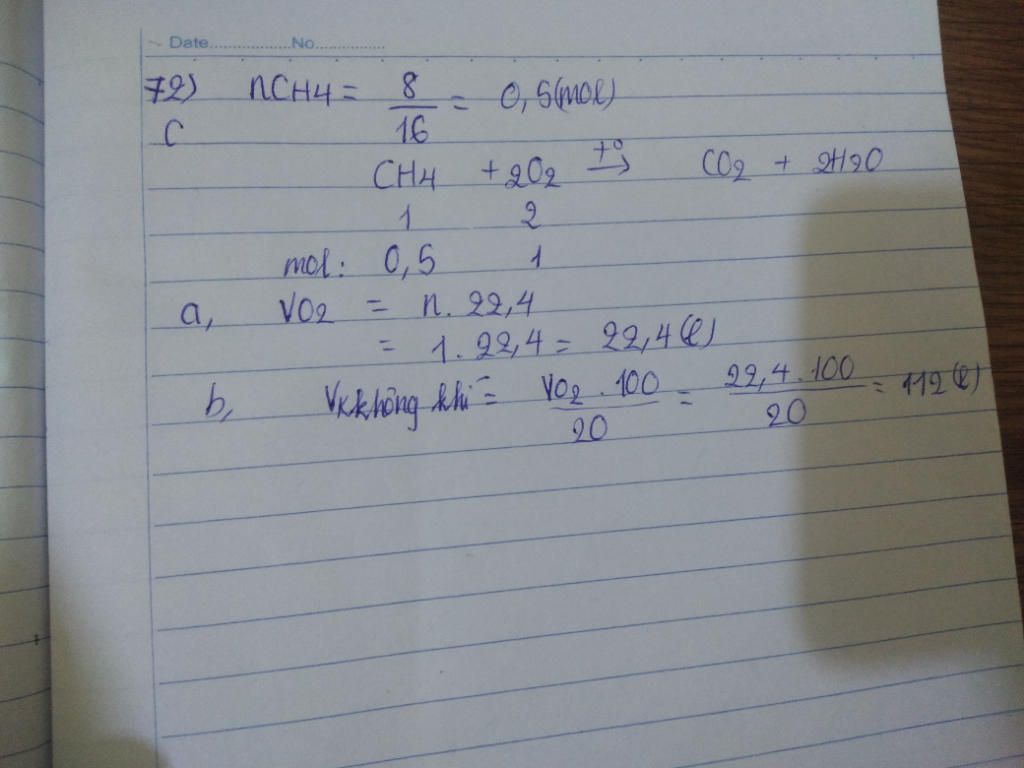 Date.................No...............
72) nCH4 = 8/16 = 0,5(mol)
C
CH4 + 2O2 t°→ CO2 + 2H2O
1 2
mol: 0,5 1
a, VO2 = n. 22,4
= 1. 22,4 = 22,4(l)
b, Vkkhông khí = VO2 . 100/20 = 22,4 . 100/20 = 112(l)